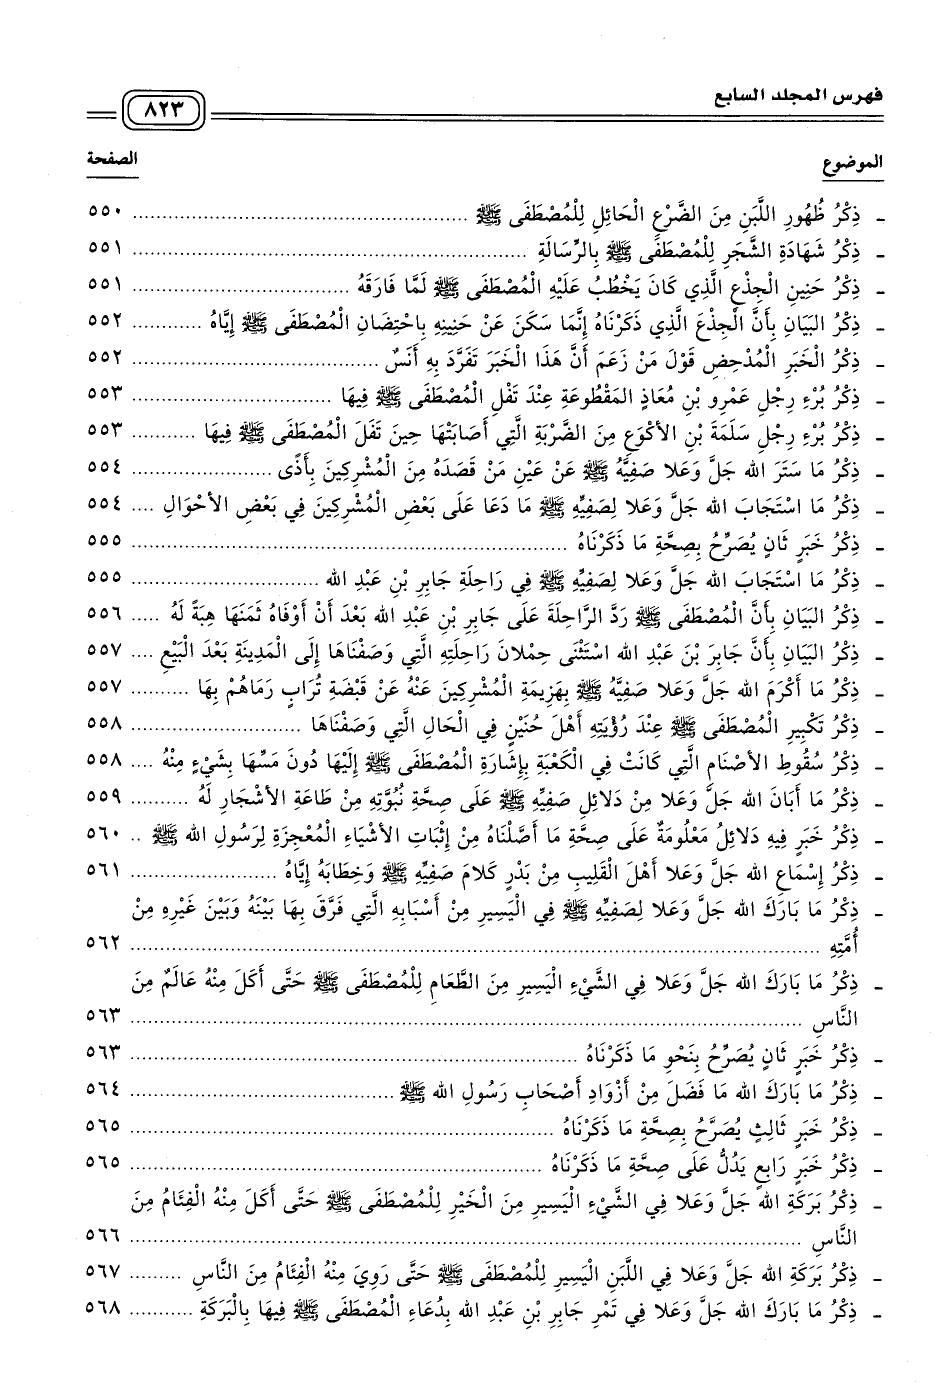 فهرس المجلد السابع
٨٢٣
الموضوع الصفحة
- ذِكْرُ ظُهُورِ اللَّبَنِ مِنَ الضَّرْعِ الْحَائِلِ لِلْمُصْطَفَى ﷺ ........ ٥٥٠
- ذِكْرُ شَهَادَةِ الشَّجَرِ لِلْمُصْطَفَى ﷺ بِالرِّسَالَةِ ........ ٥٥١
- ذِكْرُ حَنِينِ الْجِذْعِ الَّذِي كَانَ يَخْطُبُ عَلَيْهِ الْمُصْطَفَى ﷺ لَمَّا فَارَقَهُ ........ ٥٥١
- ذِكْرُ البَيَانِ بِأَنَّ الْجِذْعَ الَّذِي ذَكَرْنَاهُ إِنَّمَا سَكَنَ عَنْ حَنِينِهِ بِاحْتِضَانِ الْمُصْطَفَى ﷺ إِيَّاهُ ........ ٥٥٢
- ذِكْرُ الْخَبَرِ الْمُدْحِضِ قَوْلَ مَنْ زَعَمَ أَنَّ هَذَا الْخَبَرَ تَفَرَّدَ بِهِ أَنَسٌ ........ ٥٥٢
- ذِكْرُ بُرْءِ رِجْلِ عَمْرِو بْنِ مُعَاذٍ المَقْطُوعَةِ عِنْدَ تَفْلِ الْمُصْطَفَى ﷺ فِيهَا ........ ٥٥٣
- ذِكْرُ بُرْءِ رِجْلِ سَلَمَةَ بْنِ الأَكْوَعِ مِنَ الضَّرْبَةِ الَّتِي أَصَابَتْهَا حِينَ تَفَلَ الْمُصْطَفَى ﷺ فِيهَا ........ ٥٥٣
- ذِكْرُ مَا سَتَرَ الله جَلَّ وَعَلا صَفِيَّهُ ﷺ عَنْ عَيْنِ مَنْ قَصَدَهُ مِنَ الْمُشْرِكِينَ بِأَذًى ........ ٥٥٤
- ذِكْرُ مَا اسْتَجَابَ الله جَلَّ وَعَلا لِصَفِيِّهِ ﷺ مَا دَعَا عَلَى بَعْضِ الْمُشْرِكِينَ فِي بَعْضِ الأَحْوَالِ .... ٥٥٤
- ذِكْرُ خَبَرٍ ثَانٍ يُصَرِّحُ بِصِحَّةِ مَا ذَكَرْنَاهُ ........ ٥٥٥
- ذِكْرُ مَا اسْتَجَابَ الله جَلَّ وَعَلا لِصَفِيِّهِ ﷺ فِي رَاحِلَةِ جَابِرِ بْنِ عَبْدِ الله ........ ٥٥٥
- ذِكْرُ البَيَانِ بِأَنَّ الْمُصْطَفَى ﷺ رَدَّ الرَّاحِلَةَ عَلَى جَابِرِ بْنِ عَبْدِ الله بَعْدَ أَنْ أَوْفَاهُ ثَمَنَهَا هِبَةً لَهُ ..... ٥٥٦
- ذِكْرُ البَيَانِ بِأَنَّ جَابِرَ بْنَ عَبْدِ الله اسْتَثْنَى حِمْلانَ رَاحِلَتِهِ الَّتِي وَصَفْنَاهَا إِلَى الْمَدِينَةِ بَعْدَ الْبَيْعِ .... ٥٥٧
- ذِكْرُ مَا أَكْرَمَ الله جَلَّ وَعَلا صَفِيَّهُ ﷺ بِهَزِيمَةِ الْمُشْرِكِينَ عَنْهُ عَنْ قَبْضَةِ تُرَابٍ رَمَاهُمْ بِهَا ........ ٥٥٧
- ذِكْرُ تَكْبِيرِ الْمُصْطَفَى ﷺ عِنْدَ رُؤْيَتِهِ أَهْلَ حُنَيْنٍ فِي الْحَالِ الَّتِي وَصَفْنَاهَا ........ ٥٥٨
- ذِكْرُ سُقُوطِ الأَصْنَامِ الَّتِي كَانَتْ فِي الْكَعْبَةِ بِإِشَارَةِ الْمُصْطَفَى ﷺ إِلَيْهَا دُونَ مَسِّهَا بِشَيْءٍ مِنْهُ .... ٥٥٨
- ذِكْرُ مَا أَبَانَ الله جَلَّ وَعَلا مِنْ دَلائِلِ صَفِيِّهِ ﷺ عَلَى صِحَّةِ نُبُوَّتِهِ مِنْ طَاعَةِ الأَشْجَارِ لَهُ ........ ٥٥٩
- ذِكْرُ خَبَرٍ فِيهِ دَلائِلُ مَعْلُومَةٌ عَلَى صِحَّةِ مَا أَصَّلْنَاهُ مِنْ إِثْبَاتِ الأَشْيَاءِ الْمُعْجِزَةِ لِرَسُولِ الله ﷺ .. ٥٦٠
- ذِكْرُ إِسْمَاعِ الله جَلَّ وَعَلا أَهْلَ الْقَلِيبِ مِنْ بَدْرٍ كَلامَ صَفِيِّهِ ﷺ وَخِطَابَهُ إِيَّاهُ ........ ٥٦١
- ذِكْرُ مَا بَارَكَ الله جَلَّ وَعَلا لِصَفِيِّهِ ﷺ فِي الْيَسِيرِ مِنْ أَسْبَابِهِ الَّتِي فَرَّقَ بِهَا بَيْنَهُ وَبَيْنَ غَيْرِهِ مِنْ
أُمَّتِهِ ........ ٥٦٢
- ذِكْرُ مَا بَارَكَ الله جَلَّ وَعَلا فِي الشَّيْءِ الْيَسِيرِ مِنَ الطَّعَامِ لِلْمُصْطَفَى ﷺ حَتَّى أَكَلَ مِنْهُ عَالَمٌ مِنَ
النَّاسِ ........ ٥٦٣
- ذِكْرُ خَبَرٍ ثَانٍ يُصَرِّحُ بِنَحْوِ مَا ذَكَرْنَاهُ ........ ٥٦٣
- ذِكْرُ مَا بَارَكَ الله مَا فَضَلَ مِنْ أَزْوَادِ أَصْحَابِ رَسُولِ الله ﷺ ........ ٥٦٤
- ذِكْرُ خَبَرٍ ثَالِثٍ يُصَرِّحُ بِصِحَّةِ مَا ذَكَرْنَاهُ ........ ٥٦٥
- ذِكْرُ خَبَرٍ رَابِعٍ يَدُلُّ عَلَى صِحَّةِ مَا ذَكَرْنَاهُ ........ ٥٦٥
- ذِكْرُ بَرَكَةِ الله جَلَّ وَعَلا فِي الشَّيْءِ الْيَسِيرِ مِنَ الْخَيْرِ لِلْمُصْطَفَى ﷺ حَتَّى أَكَلَ مِنْهُ الْفِئَامُ مِنَ
النَّاسِ ........ ٥٦٦
- ذِكْرُ بَرَكَةِ الله جَلَّ وَعَلا فِي اللَّبَنِ الْيَسِيرِ لِلْمُصْطَفَى ﷺ حَتَّى رَوِيَ مِنْهُ الْفِئَامُ مِنَ النَّاسِ ........ ٥٦٧
- ذِكْرُ مَا بَارَكَ الله جَلَّ وَعَلا فِي تَمْرِ جَابِرِ بْنِ عَبْدِ الله بِدُعَاءِ الْمُصْطَفَى ﷺ فِيهَا بِالْبَرَكَةِ ........ ٥٦٨